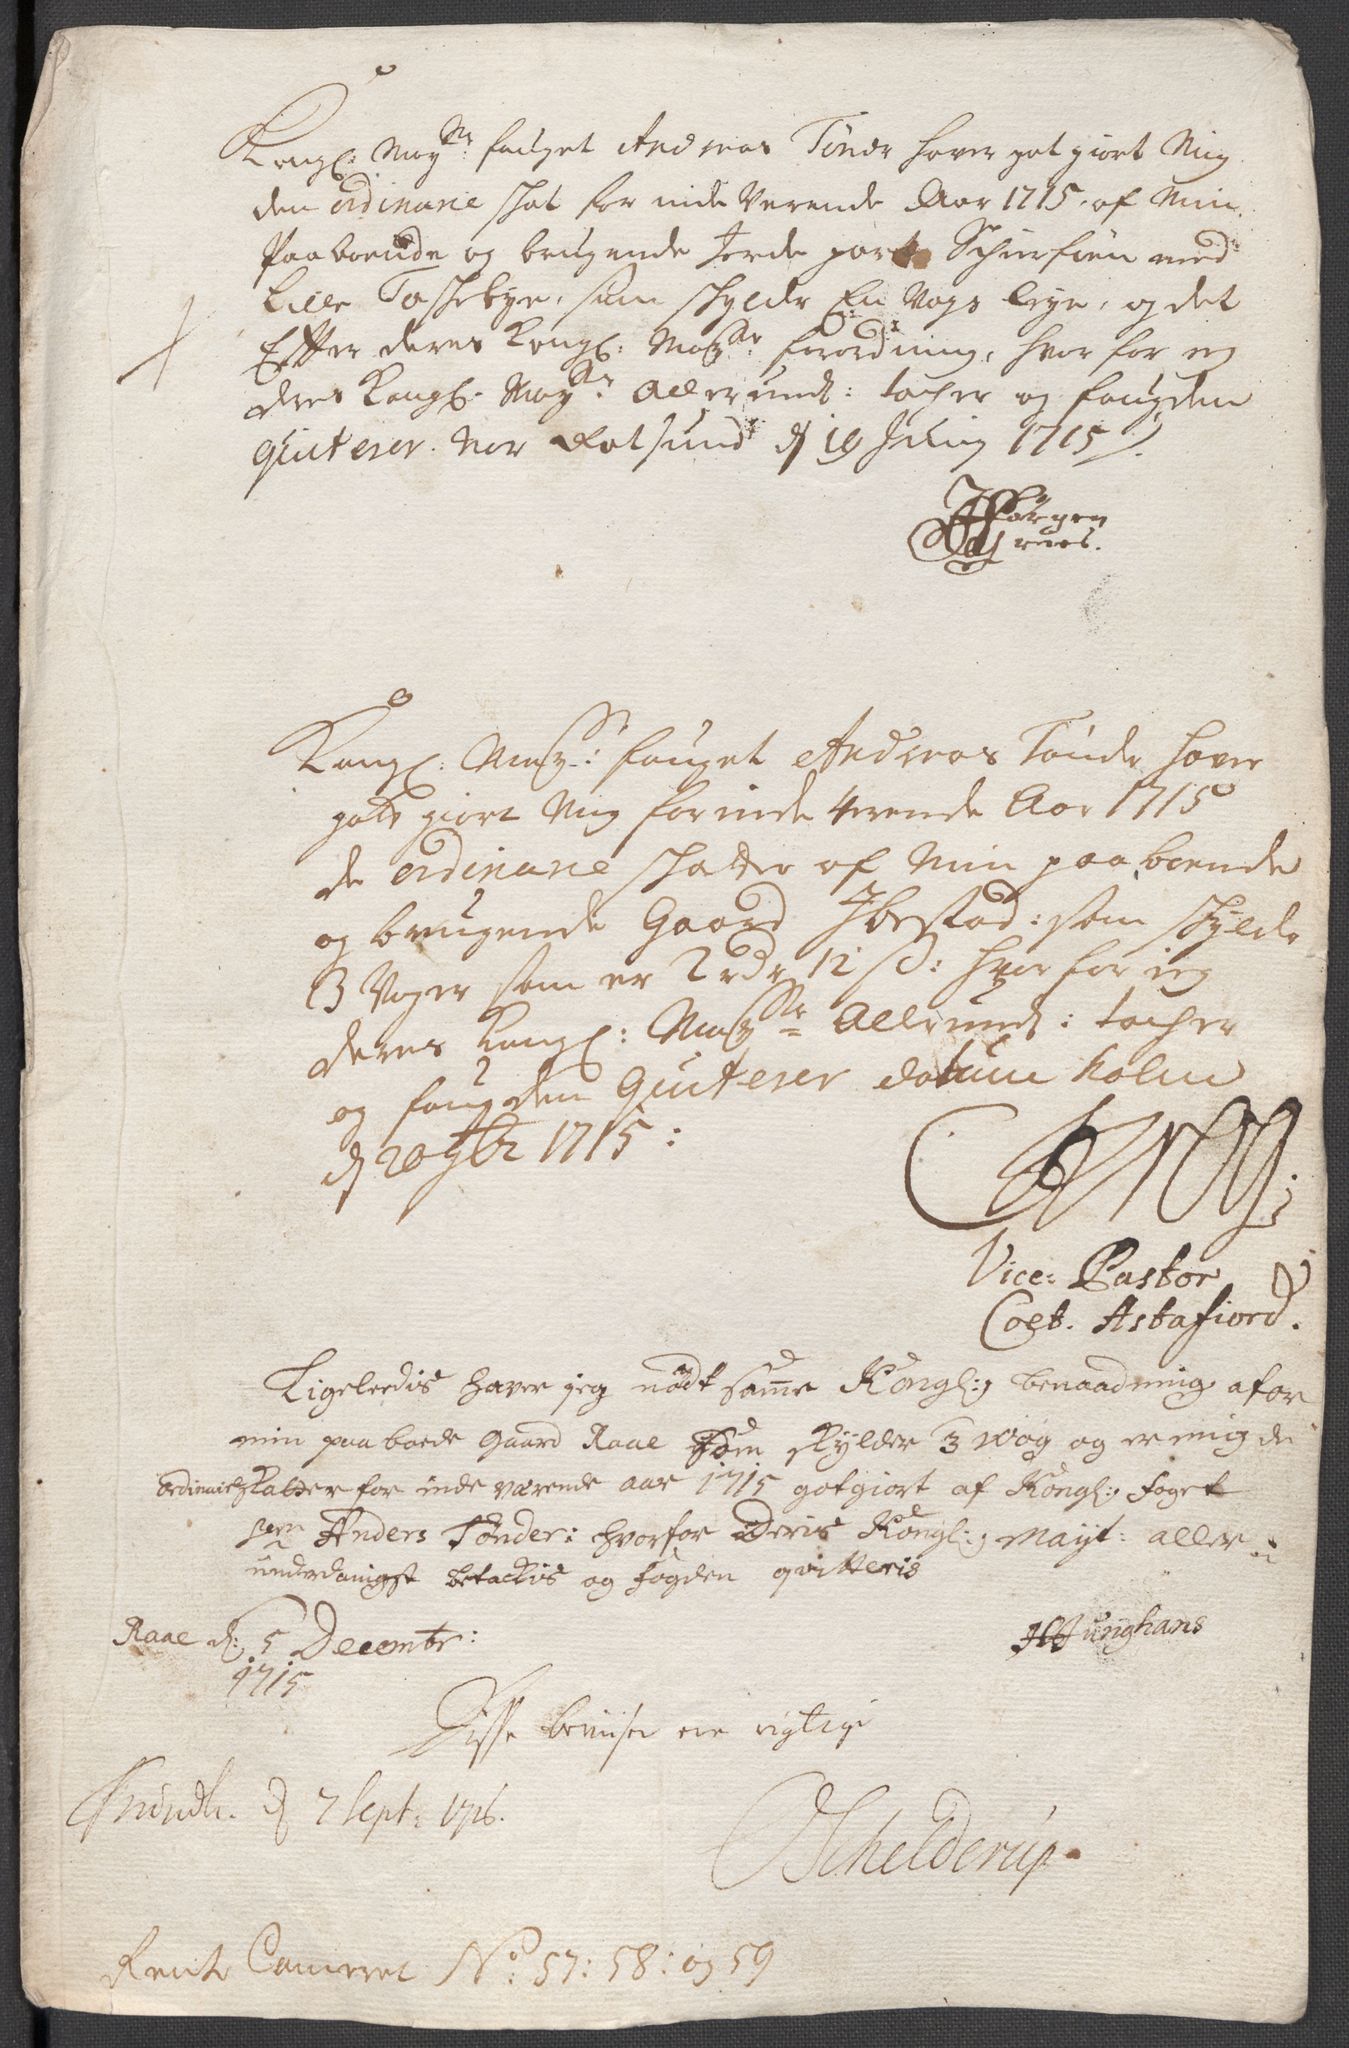 Kongl: May:tts fouget Andreas Tønder hover got giort Mig
den ordinarie skat for inde Verende Aar 1715, af Min
Paaboende og brugende Jorde part Schierfien med
Lille Taskebye, som skylder En Vogs leye, og det
Efter deres Kongl: May:tts forordning, hvor for ieg
deres Kongl: May:tt Allerund: tacher og fougden
Quiterer. Nor Rotsund d 19 Juny 1715
Jørgen
Kongl: May:tts fouget Andreas Tønder hover
godt giort Mig for inde Verende Aar 1715
de ordinarie skatter af Min paaboende
og brugende Gaard Ibestad: som skylder
3 Voger som er 2 rdr 12 s: hvor for ieg
deres Kongl: May:tt Allerund: tacher
og fougden Quiterer datum holm
d 20 9br 1715:
Vice: Pastor
Coet. Astafiord.
Ligeleedis haver jeg nödt samme Kongl: benaadning afor
min paaboede Gaard Raae som skylder 3 wog og er mig de
ordinarie skatter for inde værende aar 1715 gotgiort af Kongl: foget
Sern Anders Tønder: hvorfor Deris Kongl: Mayt: aller
underdanigst betackis og fogden qvitteris
Raae d: 5 Decembr:
1715
HJunghans
Disse beviiser ere rigtige
Trundh. d 7 Sept: 1716.
Schelderup
Rente Cammeret No: 57: 58: og 59